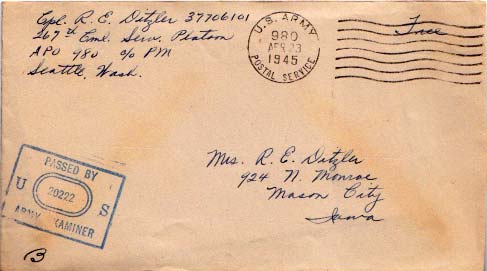 Cpl. R. E. Ditzler 37706101
267th Cml. Serv. Platoon
APO 980 c/o PM
Seattle, Wash.
U.S. ARMY
980
APR 23
1945
POSTAL SERVICE
Free
Mrs. R. E. Ditzler
924 N. Monroe
Mason City
Iowa
PASSED BY
U 20222 S
ARMY EXAMINER
B